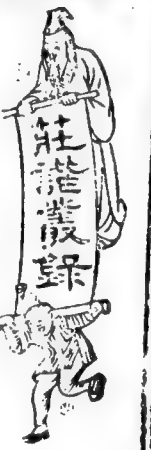 莊諧叢錄